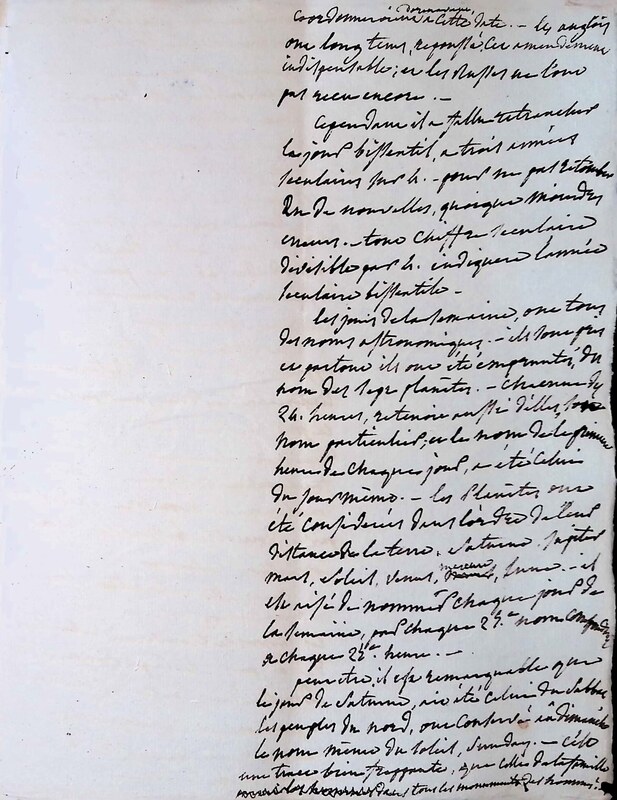 dorénavant
coordonnées à cette date. — les anglois
ont long tems, repoussé, ces amendemens
indispensable; et les Russes ne l'ont
pas recu encore. —
Cependant il a fallu retrancher
le jour bissextil, a trois années
seculaires sur 4. — pour ne pas retomber
de nouvelles, quoique moindres
erreurs. — tout chiffre seculaire
divisible par 4. indiquera l'année
seculaire bissextile. —
les jours de la semaine, ont tous
des noms astronomiques. — ils sont pris
et partout ils ont été empruntés, du
nom des sept planètes. — chacune des
24. heures, retenoit aussi d'elles, son
nom particulier; et le nom de la premiere
heure de chaque jour, a été celui
du jour même. — les Planetes ont
été considerées dans l'ordre de leur
distance de la terre. Saturne, Jupiter
mars, soleil, venus, mercure, Lune. — il
est aisé de nommer chaque jour de
la semaine, par chaque 25.e nom
a chaque 25.e heure. —
peut etre, il est remarquable que
le jour de Saturne, ait été celui du Sabbat
les peuples du nord, ont conservé au dimanche
le nom même du soleil, Sunday. — c'est
une trace bien frappante, que celle de la famille
dans tous les monuments des hommes.